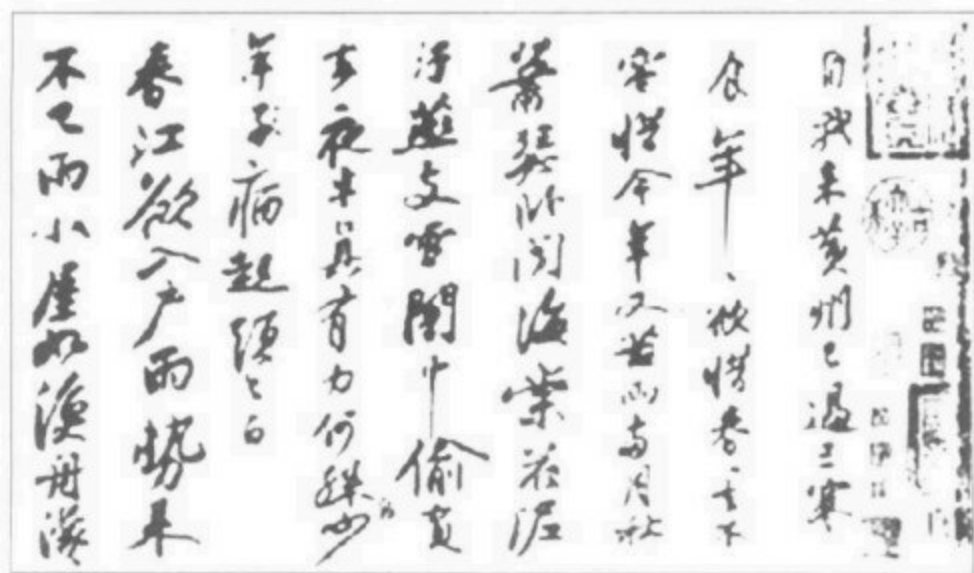 自我來黃州已過三寒
食年〻欲惜春〻去不
容惜今年又苦雨兩月秋
蕭瑟臥聞海棠花泥
汙燕支雪闇中偷負
去夜半真有力何殊病少
年子病起須已白
春江欲入戶雨勢來
不已雨小屋如漁舟濛